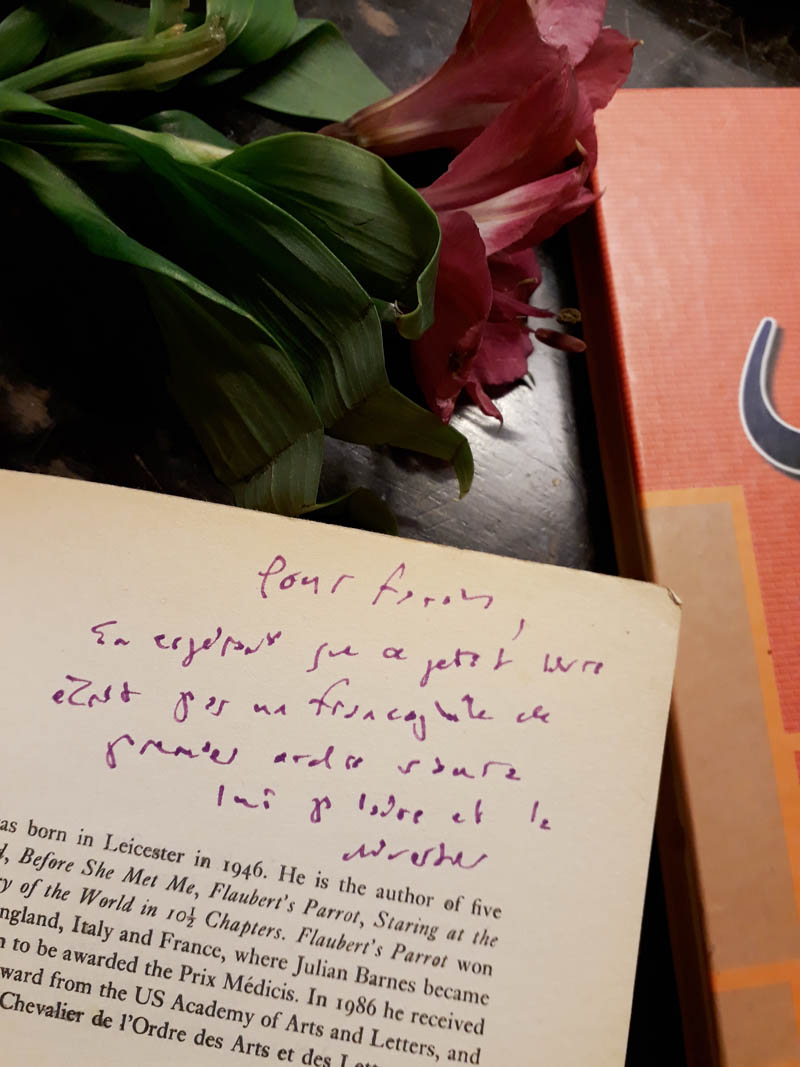 Pour
En espérant que ce petit livre
écrit par un francophile de
premier ordre saura
lui plaire et
as born in Leicester in 1946. He is the author of five
d, Before She Met Me, Flaubert's Parrot, Staring at the
ry of the World in 10½ Chapters. Flaubert's Parrot won
ngland, Italy and France, where Julian Barnes became
n to be awarded the Prix Médicis. In 1986 he received
ward from the US Academy of Arts and Letters, and
Chevalier de l'Ordre des Arts et des Lett